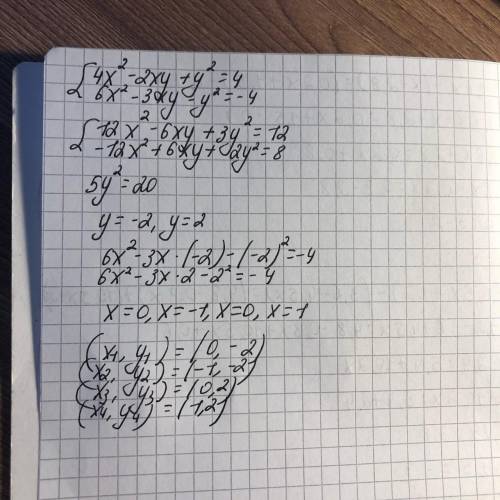 { 4x² - 2xy + y² = 4
6x² - 3xy - y² = -4
{ 12x² - 6xy + 3y² = 12
-12x² + 6xy + 2y² = 8
5y² = 20
y = -2, y = 2
6x² - 3x · (-2) - (-2)² = -4
6x² - 3x · 2 - 2² = -4
x = 0, x = -1, x = 0, x = 1
(x₁, y₁) = (0, -2)
(x₂, y₂) = (-1, -2)
(x₃, y₃) = (0, 2)
(x₄, y₄) = (1, 2)